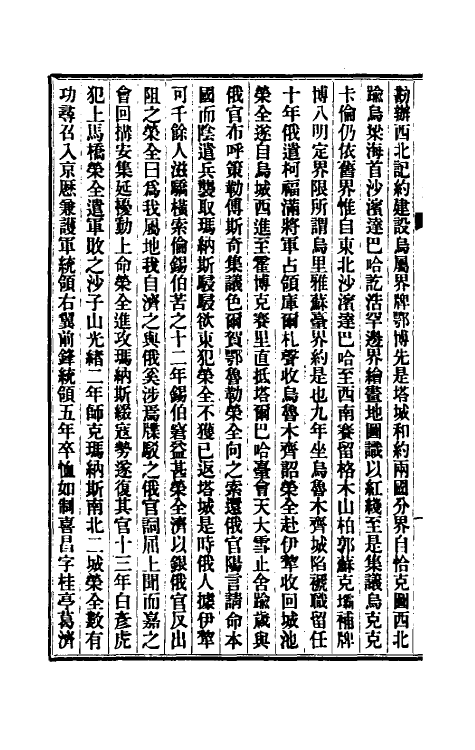 勘辦西北記約建設烏屬界牌鄂博先是塔城和約兩國分界自恰克圖西北
踰烏梁海首沙濱達巴哈訖浩罕邊界繪畫地圖識以紅綫至是集議烏克克
卡倫仍依舊界惟自東北沙濱達巴哈至西南賽留格木山柏郭蘇克壩補牌
博八明定界限所謂烏里雅蘇臺界約是也九年坐烏魯木齊城陷褫職留任
十年俄遣柯福滿將軍占領庫爾札聲收烏魯木齊詔榮全赴伊犂收回城池
榮全遂自烏城西進至霍博克賽里直抵塔爾巴哈臺會天大雪止舍踰歲與
俄官布呼策勒傅斯奇集議色爾賀鄂魯勒榮全向之索還俄官陽言請命本
國而陰遣兵襲取瑪納斯駸駸欲東犯榮全不獲已返塔城是時俄人據伊犂
可千餘人滋驕橫索倫錫伯苦之十二年錫伯窘益甚榮全濟以銀俄官反出
阻之榮全曰爲我屬地我自濟之與俄奚涉焉牒駁之俄官詞屈上聞而嘉之
會回搆安集延擾動上命榮全進攻瑪納斯綴寇勢遂復其官十三年白彥虎
犯上馬橋榮全遣軍敗之沙子山光緒二年師克瑪納斯南北二城榮全數有
功尋召入京歷兼護軍統領右翼前鋒統領五年卒恤如制喜昌字桂亭葛濟